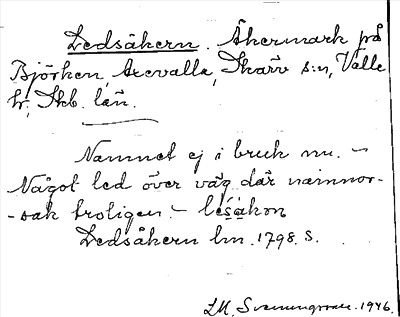 Ledsåkern. Åkermark på
Björken, Axevalla, Skarv s:n, Valle
h., Skb. län.
Namnet ej i bruk nu. –
Något led över väg där namnor-
-sak troligen. –
Ledsåkern lm. 1798. S.
1946.